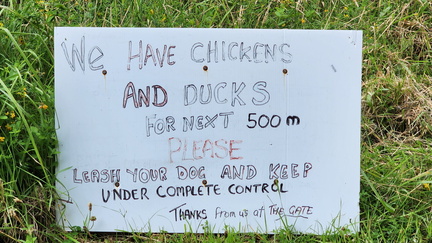 WE HAVE CHICKENS
AND DUCKS
FOR NEXT 500m
PLEASE
LEASH YOUR DOG AND KEEP
UNDER COMPLETE CONTROL
THANKS from us at THE GATE